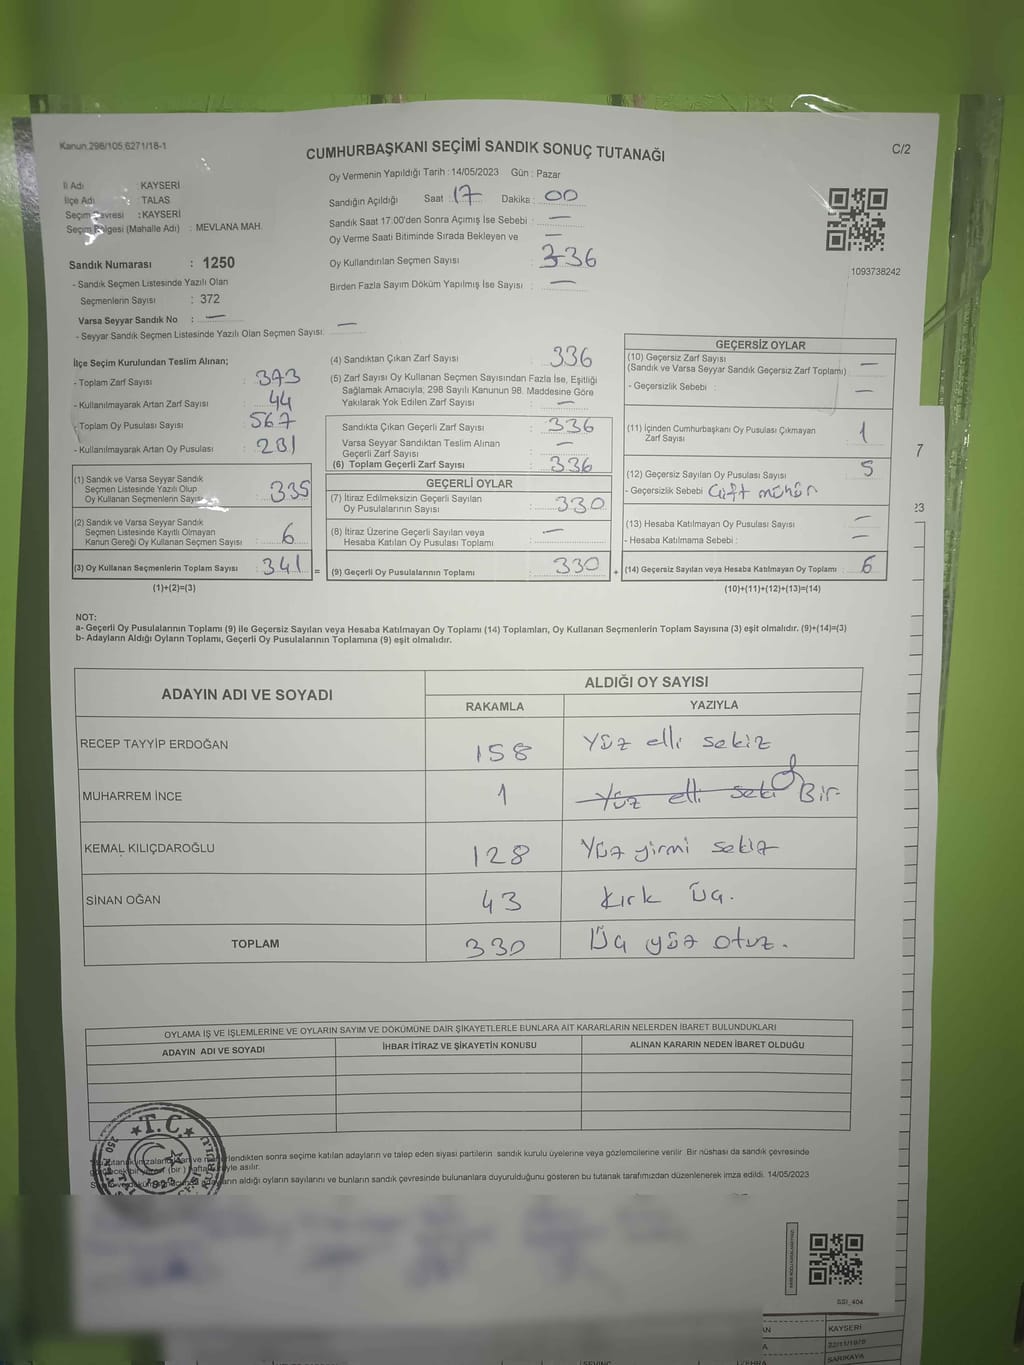 Kanun.298/105,6271/18-1
C/2
CUMHURBAŞKANI SEÇİMİ SANDIK SONUÇ TUTANAĞI
Oy Vermenin Yapıldığı Tarih : 14/05/2023 Gün : Pazar
İl Adı : KAYSERİ
İlçe Adı : TALAS
Seçim Çevresi : KAYSERİ
Seçim Bölgesi (Mahalle Adı) : MEVLANA MAH.
Sandığın Açıldığı Saat : 17 Dakika : 00
Sandık Saat 17:00'den Sonra Açımış İse Sebebi : —
Oy Verme Saati Bitiminde Sırada Bekleyen ve —
Oy Kullandırılan Seçmen Sayısı : 336
Birden Fazla Sayım Döküm Yapılmış İse Sayısı : —
1093738242
Sandık Numarası : 1250
- Sandık Seçmen Listesinde Yazılı Olan
Seçmenlerin Sayısı : 372
Varsa Seyyar Sandık No : —
- Seyyar Sandık Seçmen Listesinde Yazılı Olan Seçmen Sayısı: —
İlçe Seçim Kurulundan Teslim Alınan;
- Toplam Zarf Sayısı : 373
- Kullanılmayarak Artan Zarf Sayısı : 44
- Toplam Oy Pusulası Sayısı : 567
- Kullanılmayarak Artan Oy Pusulası : 231
(1) Sandık ve Varsa Seyyar Sandık
Seçmen Listesinde Yazılı Olup
Oy Kullanan Seçmenlerin Sayısı : 335
(2) Sandık ve Varsa Seyyar Sandık
Seçmen Listesinde Kayıtlı Olmayan
Kanun Gereği Oy Kullanan Seçmen Sayısı : 6
(3) Oy Kullanan Seçmenlerin Toplam Sayısı : 341 =
(1)+(2)=(3)
(4) Sandıktan Çıkan Zarf Sayısı : 336
(5) Zarf Sayısı Oy Kullanan Seçmen Sayısından Fazla İse, Eşitliği
Sağlamak Amacıyla, 298 Sayılı Kanunun 98. Maddesine Göre
Yakılarak Yok Edilen Zarf Sayısı : —
Sandıkta Çıkan Geçerli Zarf Sayısı : 336
Varsa Seyyar Sandıktan Teslim Alınan
Geçerli Zarf Sayısı : —
(6) Toplam Geçerli Zarf Sayısı : 336
GEÇERLİ OYLAR
(7) İtiraz Edilmeksizin Geçerli Sayılan
Oy Pusulalarının Sayısı : 330
(8) İtiraz Üzerine Geçerli Sayılan veya
Hesaba Katılan Oy Pusulası Toplamı : —
(9) Geçerli Oy Pusulalarının Toplamı : 330 +
GEÇERSİZ OYLAR
(10) Geçersiz Zarf Sayısı
(Sandık ve Varsa Seyyar Sandık Geçersiz Zarf Toplamı) : —
- Geçersizlik Sebebi : —
(11) İçinden Cumhurbaşkanı Oy Pusulası Çıkmayan
Zarf Sayısı : 1
(12) Geçersiz Sayılan Oy Pusulası Sayısı : 5
- Geçersizlik Sebebi Çift mühür
(13) Hesaba Katılmayan Oy Pusulası Sayısı : —
- Hesaba Katılmama Sebebi : —
(14) Geçersiz Sayılan veya Hesaba Katılmayan Oy Toplamı : 6
(10)+(11)+(12)+(13)=(14)
NOT:
a- Geçerli Oy Pusulalarının Toplamı (9) ile Geçersiz Sayılan veya Hesaba Katılmayan Oy Toplamı (14) Toplamları, Oy Kullanan Seçmenlerin Toplam Sayısına (3) eşit olmalıdır. (9)+(14)=(3)
b- Adayların Aldığı Oyların Toplamı, Geçerli Oy Pusulalarının Toplamına (9) eşit olmalıdır.
ADAYIN ADI VE SOYADI
ALDIĞI OY SAYISI
RAKAMLA YAZIYLA
RECEP TAYYİP ERDOĞAN 158 Yüz elli sekiz
MUHARREM İNCE 1 Yüz elli seki Bir
KEMAL KILIÇDAROĞLU 128 Yüz yirmi sekiz
SİNAN OĞAN 43 Kırk Üç.
TOPLAM 330 Üç yüz otuz.
OYLAMA İŞ VE İŞLEMLERİNE VE OYLARIN SAYIM VE DÖKÜMÜNE DAİR ŞİKAYETLERLE BUNLARA AİT KARARLARIN NELERDEN İBARET BULUNDUKLARI
ADAYIN ADI VE SOYADI İHBAR İTİRAZ VE ŞİKAYETİN KONUSU ALINAN KARARIN NEDEN İBARET OLDUĞU
T.C.
sonra seçime katılan adayların ve talep eden siyasi partilerin sandık kurulu üyelerine veya gözlemcilerine verilir. Bir nüshası da sandık çevresinde
(bir) asılır.
aldığı oyların sayılarını ve bunların sandık çevresinde bulunanlara duyurulduğunu gösteren bu tutanak tarafımızdan düzenlenerek imza edildi. 14/05/2023
SSİ_404
7
23
KAYSERİ
SARIKAYA